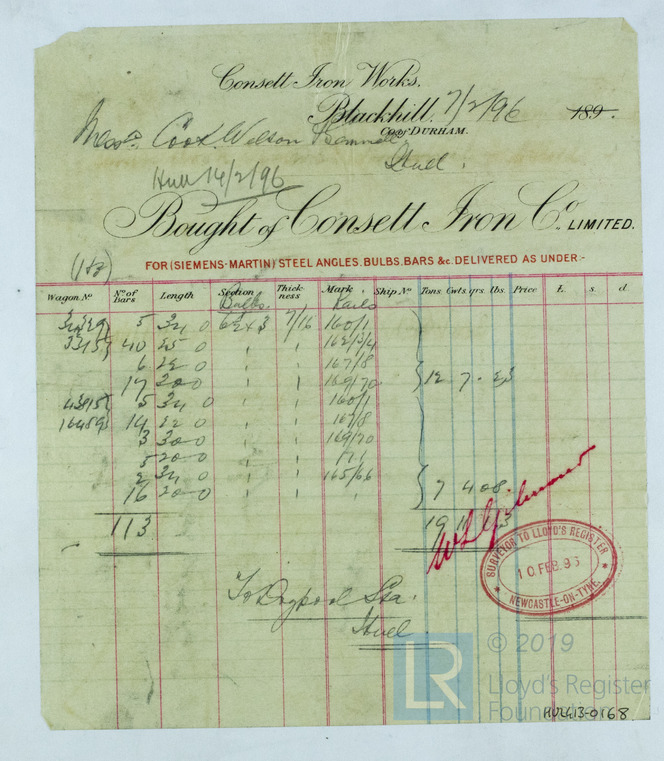 Consett Iron Works,
Blackhill, 7/2/96 189
Co. of DURHAM.
Messrs Cook, Welton & Gemmell,
Hull.
Hull 14/2/96
Bought of Consett Iron Co. LIMITED.
FOR (SIEMENS-MARTIN) STEEL ANGLES, BULBS, BARS &c. DELIVERED AS UNDER:-
Wagon No. No. of Bars Length Section Thickness Mark Ship No. Tons. Cwts. qrs. lbs. Price £. s. d.
Bulbs. Rails
5 34 0 6½ x 3 7/16 160/1
40 25 0 " " 162/3/4
6 22 0 " " 167/8
17 20 0 " " 169/70 12 7 - 23
5 34 0 " " 160/1
14 22 0 " " 167/8
3 30 0 " " 169/70
5 20 0 " " 171
2 34 0 " " 165/66
16 20 0 " " " 7 4 0 8
113 19 11
To Drypool Sta.
Hull
SURVEYOR TO LLOYD'S REGISTER
10 FEB. 96
NEWCASTLE-ON-TYNE.
LR © 2019
Lloyd's Register
Foundation
HUL413-0168